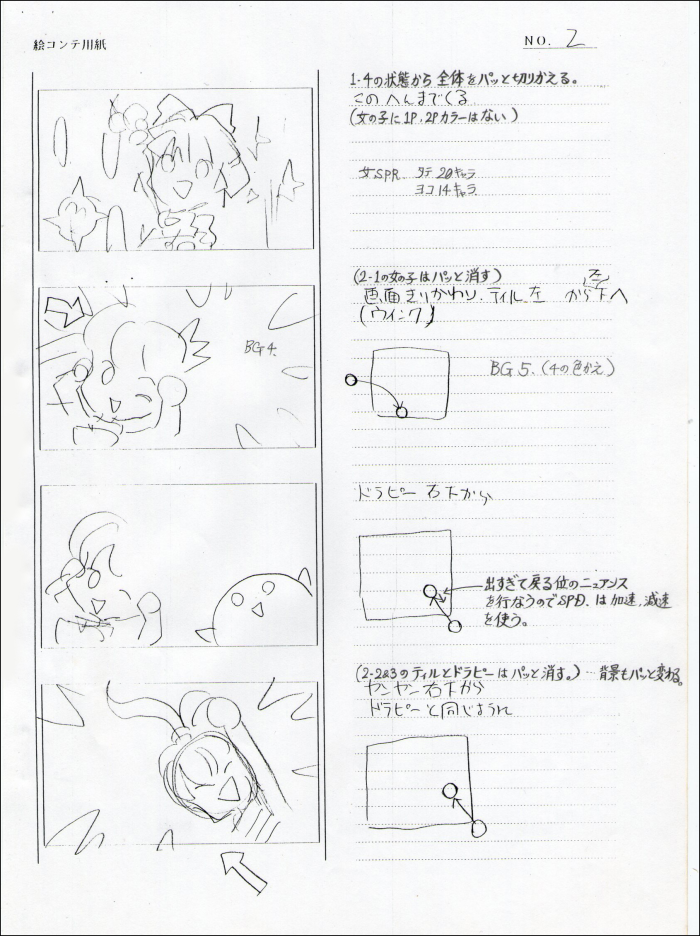 絵コンテ用紙
NO. 2
1-4の状態から全体をパッと切りかえる。
このへんまでくる
(女の子に1P.2Pカラーはない)
女SPR タテ20キャラ
ヨコ14キャラ
(2-1の女の子はパッと消す)
画面きりかわり.ティル左から下へ
(ウインク)
BG4.
BG5.(4の色かえ)
ドラピー 右下から
出すぎて戻る位のニュアンス
を行なうのでSPD.は加速,減速
を使う。
(2-2&3のティルとドラピーはパッと消す。)…背景もパッと変わる。
ヤンヤン右下から
ドラピーと同じように